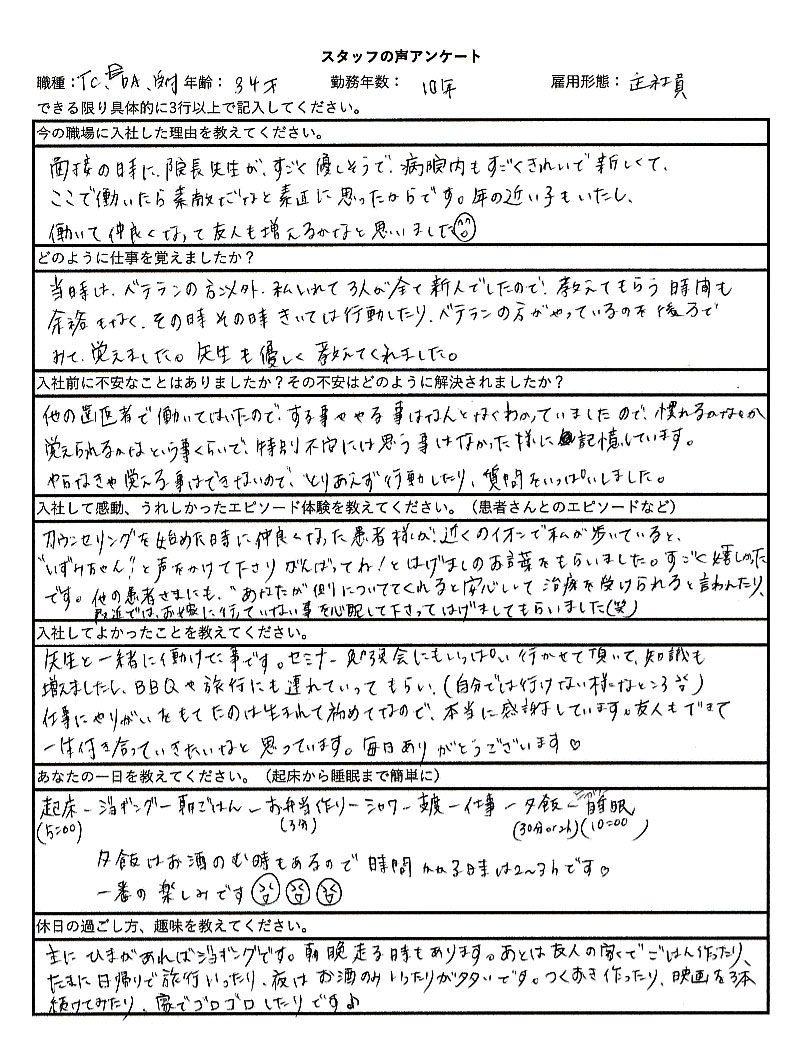 スタッフの声アンケート
職種：TC、DA、受付 年齢：34才 勤務年数：10年 雇用形態：正社員
できる限り具体的に3行以上で記入してください。
今の職場に入社した理由を教えてください。
面接の時に、院長先生が、すごく優しそうで、病院内もすごくきれいで新しくて、
ここで働いたら素敵だなと素直に思ったからです。年の近い子もいたし、
働いて仲良くなって友人も増えるかなと思いました
どのように仕事を覚えましたか？
当時は、ベテランの方以外、私いれて3人が全て新人でしたので、教えてもらう時間も
余裕もなく、その時その時きいては行動したり、ベテランの方がやっているのを後ろで
みて、覚えました。先生も優しく教えてくれました。
入社前に不安なことはありましたか？その不安はどのように解決されましたか？
他の歯医者で働いてはいたので、する事ややる事はなんとなくわかっていましたので、慣れるかなとか
覚えられるかなという事くらいで、特別不安には思う事はなかった様に記憶しています。
やらなきゃ覚える事はできないので、とりあえず行動したり、質問をいっぱいしました。
入社して感動、うれしかったエピソード体験を教えてください。（患者さんとのエピソードなど）
カウンセリングを始めた時に仲良くなった患者様が、近くのイオンで私が歩いていると、
"いずみちゃん！"と声をかけて下さりがんばってね！とはげましのお言葉をもらいました。すごく嬉しかった
です。他の患者さまにも、"あなたが側についててくれると安心して治療を受けられると言われたり、
最近では、お嫁に行ていない事を心配して下さってはげましてもらいました(笑)
入社してよかったことを教えてください。
先生と一緒に働けた事です。セミナー、勉強会にもいっぱい行かせて頂いて、知識も
増えましたし、BBQや旅行にも連れていってもらい、(自分では行けない様なところ)
仕事にやりがいをもてたのは生まれて初めてなので、本当に感謝しています。友人もできて
一生付き合っていきたいなと思っています。毎日ありがとうございます♡
あなたの一日を教えてください。（起床から睡眠まで簡単に）
起床－ジョギング－朝ごはん－お弁当作り－シャワー－支度－仕事－夕飯－睡眠
(5:00) (3分) (30分or2h) (10:00 )
夕飯はお酒のむ時もあるので時間かかる日時は2～3hです♡
一番の楽しみです
休日の過ごし方、趣味を教えてください。
主にひまがあればジョギングです。朝晩走る時もあります。あとは友人の家でごはん作ったり、
たまに日帰りで旅行いったり、夜はお酒のみいったりが多いです。つくおき作ったり、映画を3本
続けてみたり、家でゴロゴロしたりです♪